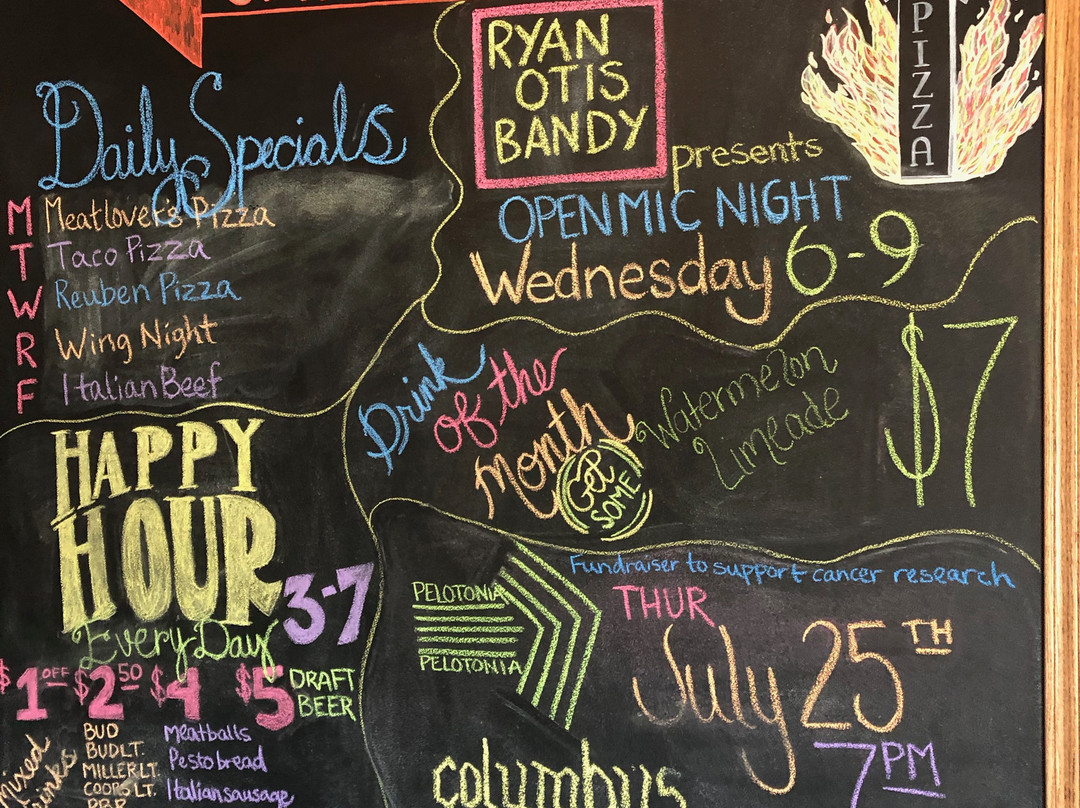 Daily Specials
M Meatlover's Pizza
T Taco Pizza
W Reuben Pizza
R Wing Night
F Italian Beef
HAPPY
HOUR
3-7
Every Day
$1 OFF $2 50 $4 $5 DRAFT BEER
mixed
drinks
BUD
BUD LT.
MILLER LT
COORS LT.
PBR
Meatballs
Pesto bread
Italian sausage
RYAN
OTIS
BANDY
presents
OPEN MIC NIGHT
Wednesday 6-9
PIZZA
Drink
of the
Month
Get
SOME
Watermelon
Limeade
$7
Fundraiser to support cancer research
PELOTONIA
PELOTONIA
THUR
July 25TH
7PM
columbus